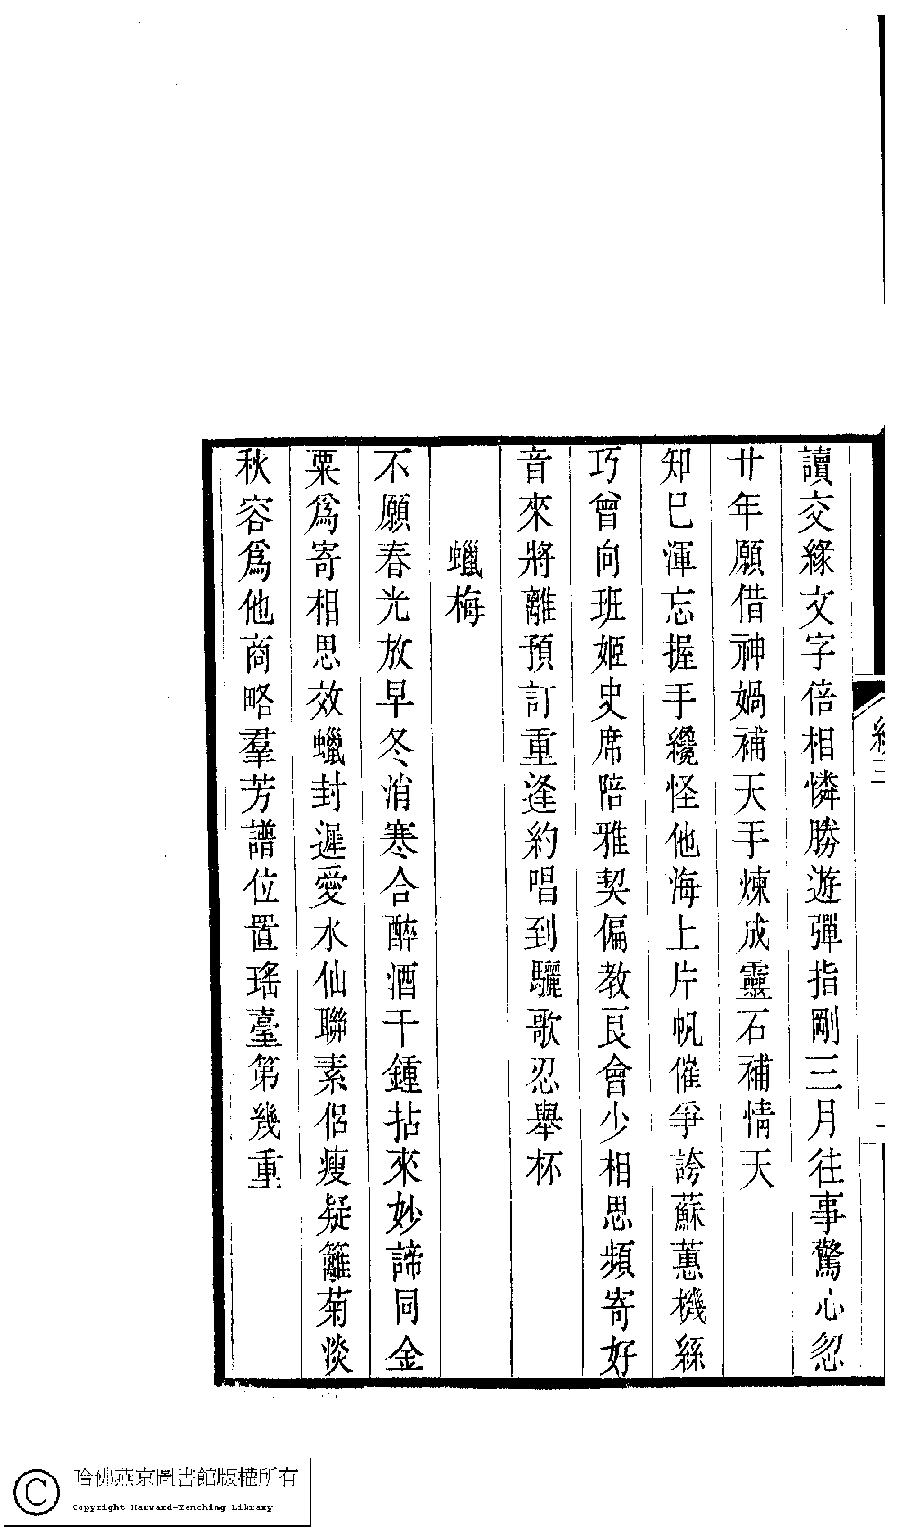 讀交緣文字倍相憐勝遊彈指剛三月往事驚心忽
廿年願借神媧補天手煉成靈石補情天
知已渾忘握手纔怪他海上片帆催爭誇蘇蕙機絲
巧曾向班姬史席陪雅契偏教良會少相思頻寄好
音來將離預訂重逢約唱到驪歌忍舉杯
蠟梅
不願春光放早冬消寒合醉酒千鍾拈來妙諦同金
粟爲寄相思效蠟封遲愛水仙聯素侶瘦疑籬菊淡
秋容爲他商略羣芳譜位置瑤臺第幾重
哈佛燕京圖書館版權所有
Copyright Harvard-Yenching Library